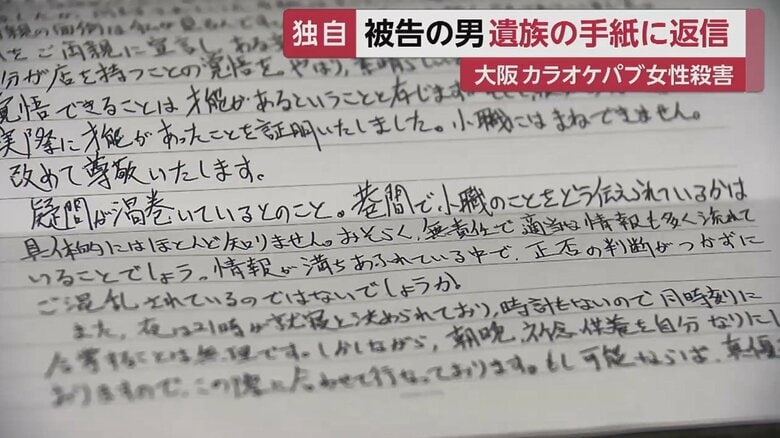 独自
被告の男 遺族の手紙に返信
大阪 カラオケパブ女性殺害
をご両親に宣言し、ある
分が店を持つことの覚悟を。やはり、
覚悟できることは才能があるということと存じます。
実際に才能があったことを証明いたしました。小職にはまねできません。
改めて尊敬いたします。
疑問が渦巻いているとのこと。巷間で小職のことをどう伝えられているかは
具体的にはほとんど知りません。おそらく、無責任で適当な情報も多く流れて
いることでしょう。情報が満ちあふれている中で、正否の判断がつかずに
ご混乱されているのではないでしょうか。
また、夜は21時が就寝と決められており、時計もないので同時刻に
合掌することは無理です。しかしながら、朝晩、祈念供養を自分なりにし
おりますので、この際に合わせて行なっております。もし可能ならば、